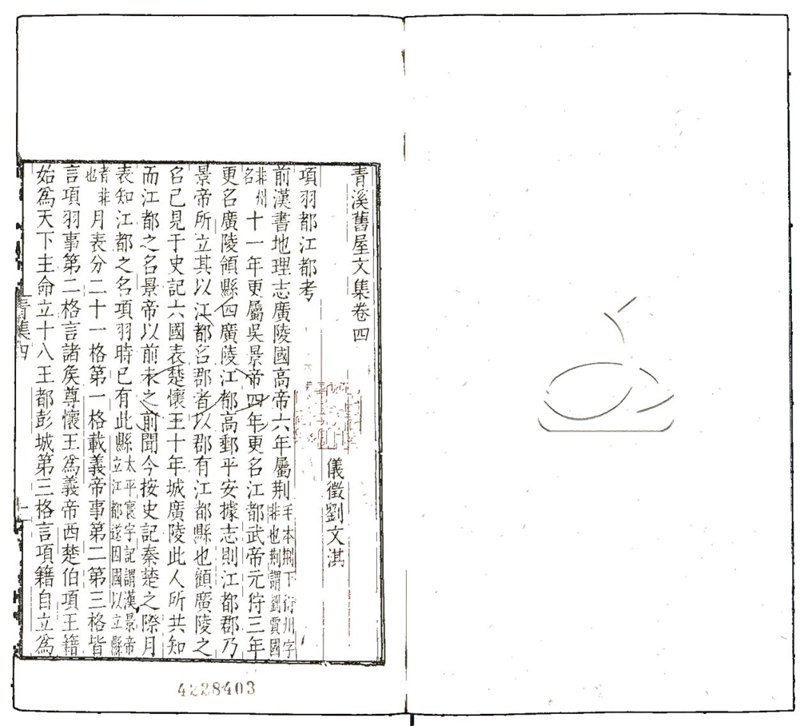 青溪舊屋文集卷四
儀徵劉文淇
項羽都江都考
前漢書地理志廣陵國高帝六年屬荆毛本荆下衍州字非也荆謂劉賈國
名非州十一年更屬吳景帝四年更名江都武帝元狩三年
更名廣陵領縣四廣陵江都高郵平安據志則江都郡乃
景帝所立其以江都名郡者以郡有江都縣也顧廣陵之
名已見于史記六國表楚懷王十年城廣陵此人所共知
而江都之名景帝以前未之前聞今按史記秦楚之際月
表知江都之名項羽時已有此縣太平寰宇記謂漢景帝立江都遂因國以立縣
者非也月表分二十一格第一格載義帝事第二第三格皆
言項羽事第二格言諸矦尊懷王爲義帝西楚伯項王籍
始爲天下主命立十八王都彭城第三格言項籍自立爲
青集四
4228403